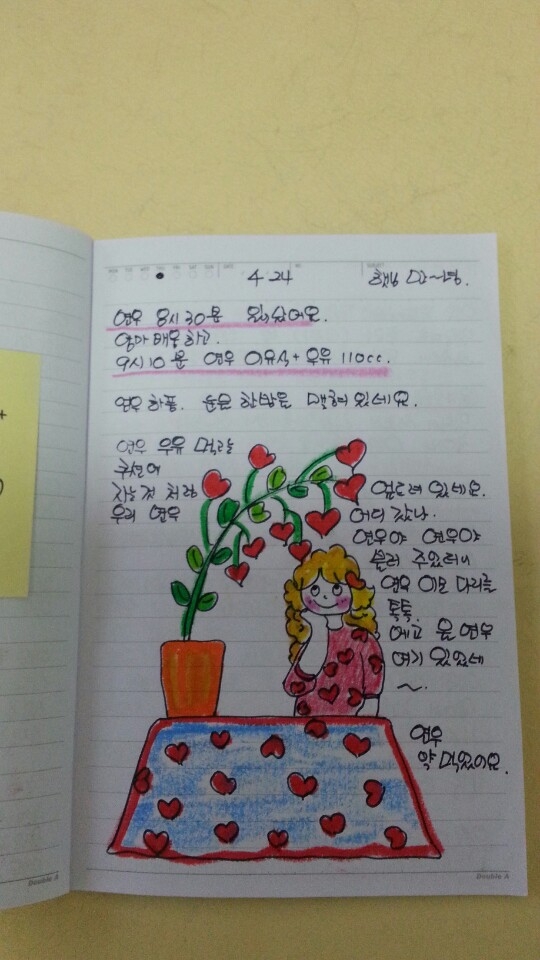 4. 24
연우 8시 30분 일어났어요.
엄마 배웅하고.
9시 10분 연우 이유식 + 우유 110cc.
연우 하품. 눈은 한방울 맺혀 있네요.
연우 우유 먹고는
자는 것 처럼
우리 연우
엎드려 있네요.
어디 갔나.
연우야 연우야
불러 주었더니
연우 이모 다리를
톡톡.
에고 울 연우
여기 있었네
~.
연우
약 먹었어요.
Double A
Double A